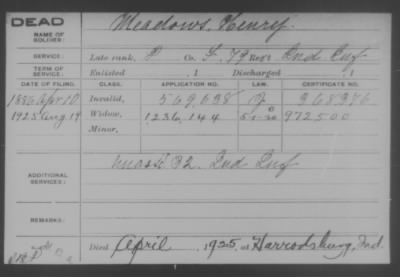 DEAD
NAME OF SOLDIER: Meadows, Henry
SERVICE: Late rank, P Co. F, 79 Reg't Ind. Inf
TERM OF SERVICE: Enlisted , 1 Discharged , 1
DATE OF FILING. CLASS. APPLICATION NO. LAW. CERTIFICATE NO.
1886 Apr 10 Invalid, 569,638 368376
1925 Aug 19 Widow, 1236,144 972500
Minor,
ADDITIONAL SERVICES: 82. Ind Inf
REMARKS:
Died April , 1925, at Harrodsburg, Ind.